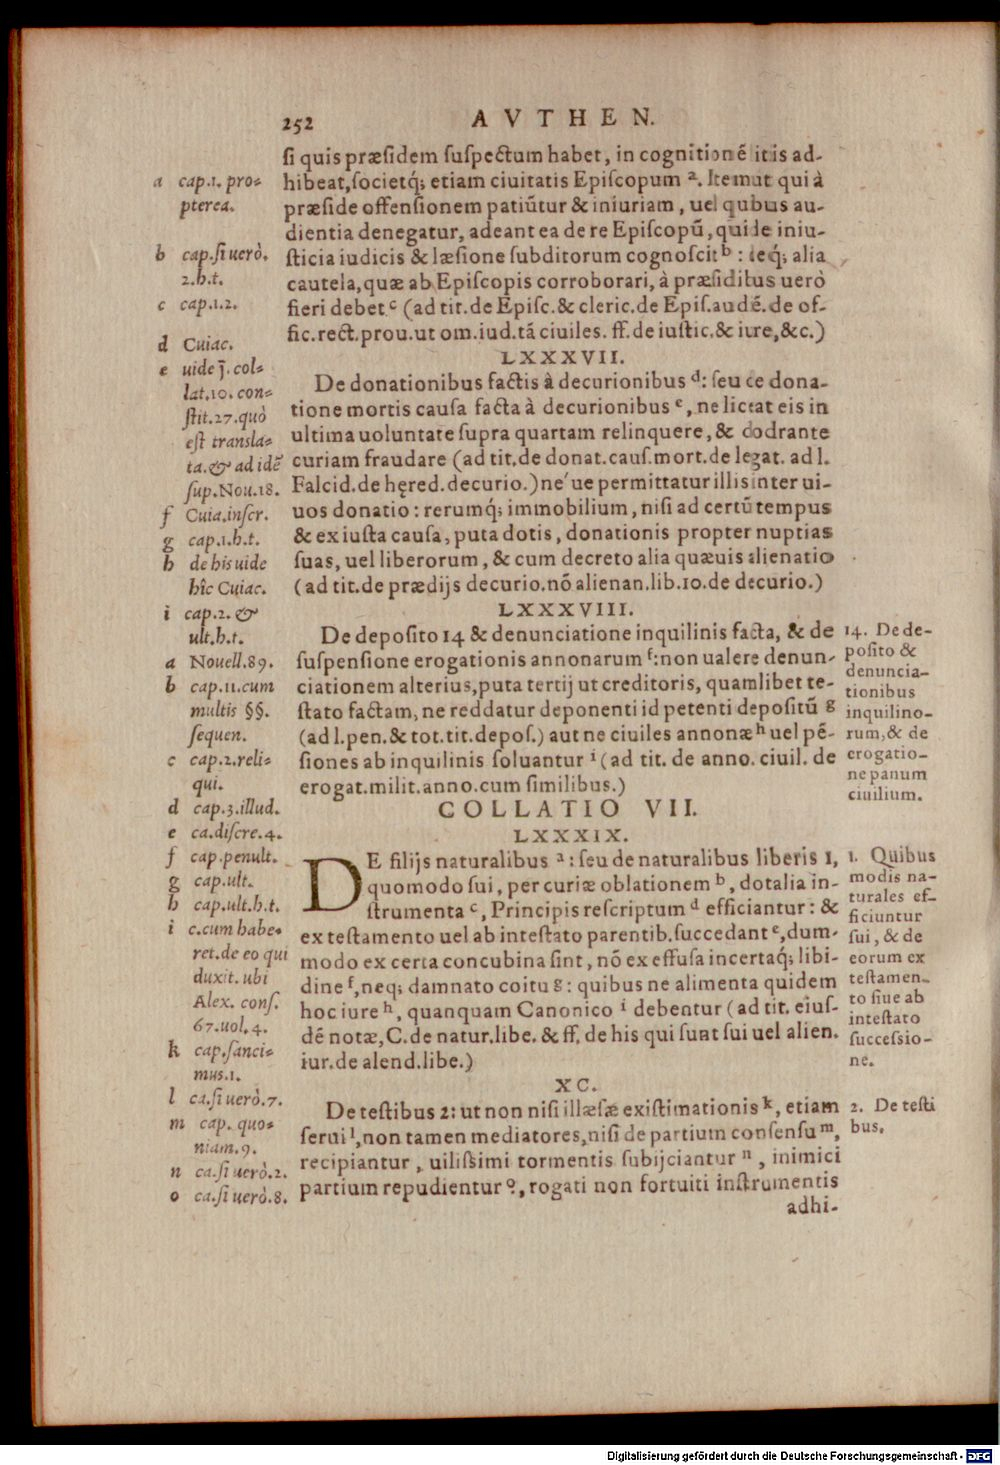 252 AVTHEN.
si quis præsidem suspectum habet, in cognitionē litis ad-
hibeat, societq́; etiam ciuitatis Episcopum ᵃ. Item ut qui à
præside offensionem patiūtur & iniuriam, uel quibus au-
dientia denegatur, adeant ea de re Episcopū, qui de iniu-
sticia iudicis & læsione subditorum cognoscit ᵇ : eq́; alia
cautela, quæ ab Episcopis corroborari, à præsiditus uerò
fieri debet ᶜ (ad tit. de Episc. & cleric. de Epis. audē. de of-
fic. rect. prou. ut om. iud. tā ciuiles. ff. de iustic. & iure, &c.)
LXXXVII.
De donationibus factis à decurionibus ᵈ: seu de dona-
tione mortis causa facta à decurionibus ᵉ, ne liceat eis in
ultima uoluntate supra quartam relinquere, & dodrante
curiam fraudare (ad tit. de donat. caus. mort. de legat. ad l.
Falcid. de hęred. decurio.) ne´ue permittatur illis inter ui-
uos donatio: rerumq́; immobilium, nisi ad certū tempus
& ex iusta causa, puta dotis, donationis propter nuptias
suas, uel liberorum, & cum decreto alia quæuis alienatio
(ad tit. de prædijs decurio. nō alienan. lib. 10. de decurio.)
LXXXVIII.
De deposito 14 & denunciatione inquilinis facta, & de
suspensione erogationis annonarum ᶠ: non ualere denun-
ciationem alterius, puta tertij ut creditoris, quamlibet te-
stato factam, ne reddatur deponenti id petenti depositū ᵍ
(ad l. pen. & tot. tit. depos.) aut ne ciuiles annonæ ʰ uel pē-
siones ab inquilinis soluantur ⁱ (ad tit. de anno. ciuil. de
erogat. milit. anno. cum similibus.)
COLLATIO VII.
LXXXIX.
DE filijs naturalibus ᵃ: seu de naturalibus liberis 1,
quomodo sui, per curiæ oblationem ᵇ, dotalia in-
strumenta ᶜ, Principis rescriptum ᵈ efficiantur: &
ex testamento uel ab intestato parentib. succedant ᵉ, dum-
modo ex certa concubina sint, nō ex effusa incertaq́; libi-
dine ᶠ, neq; damnato coitu ᵍ: quibus ne alimenta quidem
hoc iure ʰ, quanquam Canonico ⁱ debentur (ad tit. eius-
dē notæ, C. de natur. libe. & ff. de his qui sunt sui uel alien.
iur. de alend. libe.)
XC.
De testibus 2: ut non nisi illæsæ existimationis ᵏ, etiam
serui ˡ, non tamen mediatores, nisi de partium consensu ᵐ,
recipiantur, uilissimi tormentis subijciantur ⁿ, inimici
partium repudientur º, rogati non fortuiti instrumentis
adhi-
a cap.1. pro-
pterea.
b cap. si uerò.
2.h.t.
c cap.1.2.
d Cuiac.
e uide j̄. col-
lat.10. con-
stit.27. quò
est transla-
ta. & ad idē
sup. Nou.18.
f Cuia. inscr.
g cap.1.h.t.
h de his uide
hîc Cuiac.
i cap.2. &
ult.h.t.
a Nouell.89.
b cap.11. cum
multis §§.
sequen.
c cap.2. reli-
qui.
d cap.3. illud.
e ca. discre.4.
f cap. penult.
g cap. ult.
h cap. ult.h.t.
i c. cum habe-
ret. de eo qui
duxit. ubi
Alex. cons.
67. uol.4.
k cap. sanci-
mus.1.
l ca. si uerò.7.
m cap. quo-
niam.9.
n ca. si uerò.2.
o ca. si uerò.8.
14. De de-
posito &
denuncia-
tionibus
inquilino-
rum, & de
erogatio-
ne panum
ciuilium.
1. Quibus
modis na-
turales ef-
ficiuntur
sui, & de
eorum ex
testamen-
to siue ab
intestato
successio-
ne.
2. De testi
bus.
Digitalisierung gefördert durch die Deutsche Forschungsgemeinschaft - DFG